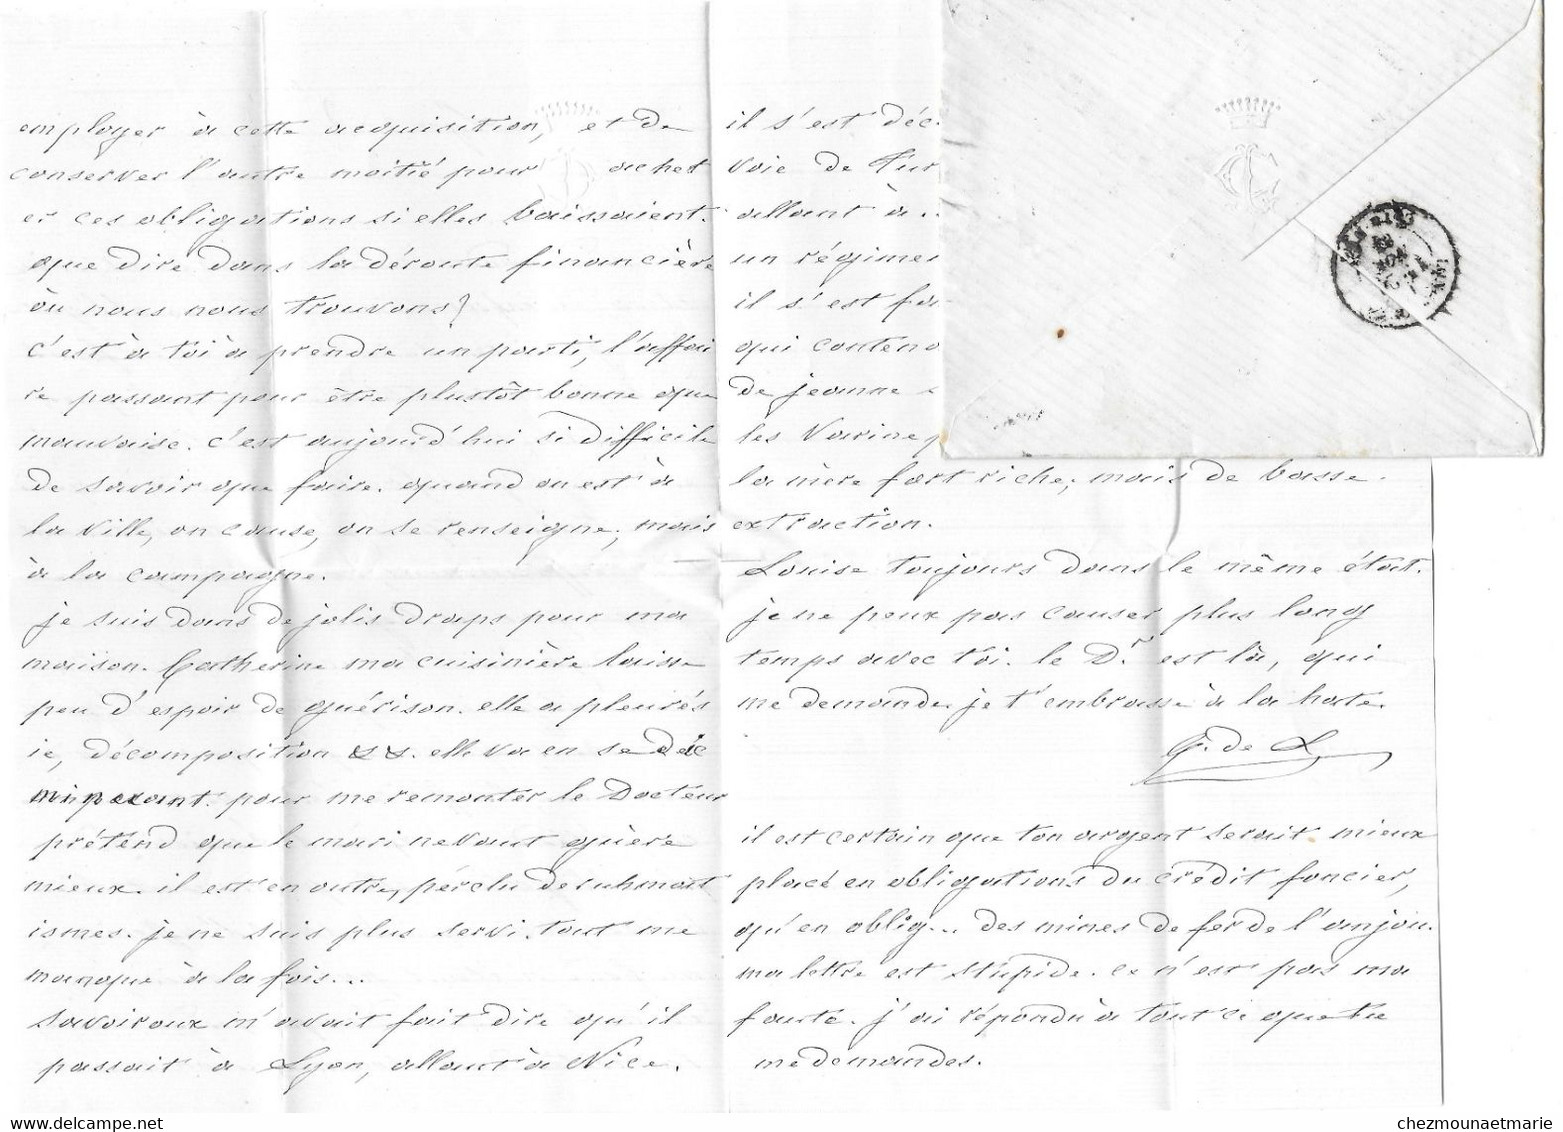 employer à cette acquisition, et de
conserver l'autre moitié pour achet
er ces obligations si elles baissaient.
que dire dans la déroute financière
où nous nous trouvons?
c'est à toi à prendre un parti, l'affai
re passant pour être plustôt bonne que
mauvaise. c'est aujourd'hui si difficile
de savoir que faire. quand on est à
la ville, on cause, on se renseigne, mais
à la campagne.
je suis dans de jolis draps pour ma
maison. Catherine ma cuisinière laisse
peu d'espoir de guérison. elle a pleurés
ie, décomposition && . elle va en se déc
pour me remonter le Docteur
prétend que le mari ne vaut guère
mieux. il est en outre, perclu de ruhmat
ismes. je ne suis plus servi. tout me
manque à la fois...
Savoiroux m'avait fait dire qu'il
passait à Lyon, allant à Nice.
il s'est déc
voie de Tur
allant à
un régime
il s'est fa
qui conten
de jeanne
les Varine
la mère fort riche, mais de basse
extraction.
Louise toujours dans le même état.
je ne peux pas causer plus long
temps avec toi. le Dr. est là, qui
me demande. je t'embrasse à la hate.
G. de L
il est certain que ton argent serait mieux
placé en obligations du crédit foncier,
qu'en oblig... des mines de fer de l'anjou.
ma lettre est stupide. ce n'est pas ma
faute. j'ai répondu à tout ce que tu
me demandes.
chezmounaetmarie